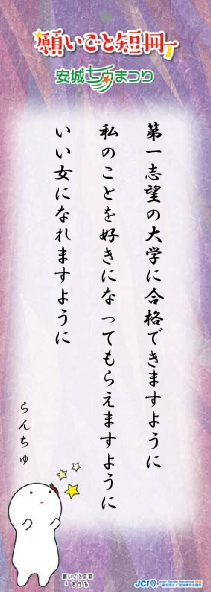 願いごと短冊
安城七夕まつり
第一志望の大学に合格できますように
私のことを好きになってもらえますように
いい女になれますように
らんちゅ
JCI